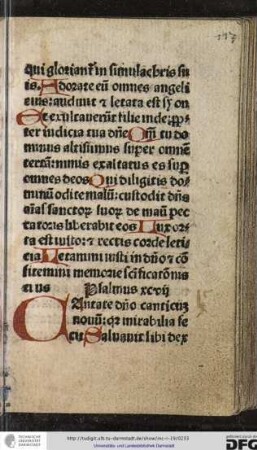 qui gloriant᷑ in simulachris su
is. Adorate eū omnes angeli
eius: audiuit & letata est syon
Et exultauerūt filie iude: ꝓp
ter iudicia tua dn̄e Qm̄ tu do
minus altissimus super omnē
terrā: nimis exaltatus es sup
omnes deos Qui diligitis do
minū odite malū: custodit dn̄s
aīas sanctoꝝ suoꝝ de manu pec
catoris liberabit eos Lux or
ta est iusto: & rectis corde leti
cia Letamini iusti in dn̄o & cō
fitemini memorie scīficatōnis
eius Psalmus xcvij
Cantate dn̄o canticuꝫ
nouū: qꝛ mirabilia fe
cit Saluauit sibi dex
TECHNISCHE
UNIVERSITÄT
DARMSTADT
http://tudigit.ulb.tu-darmstadt.de/show/inc-i-19/0233
Universitäts- und Landesbibliothek Darmstadt
DFG